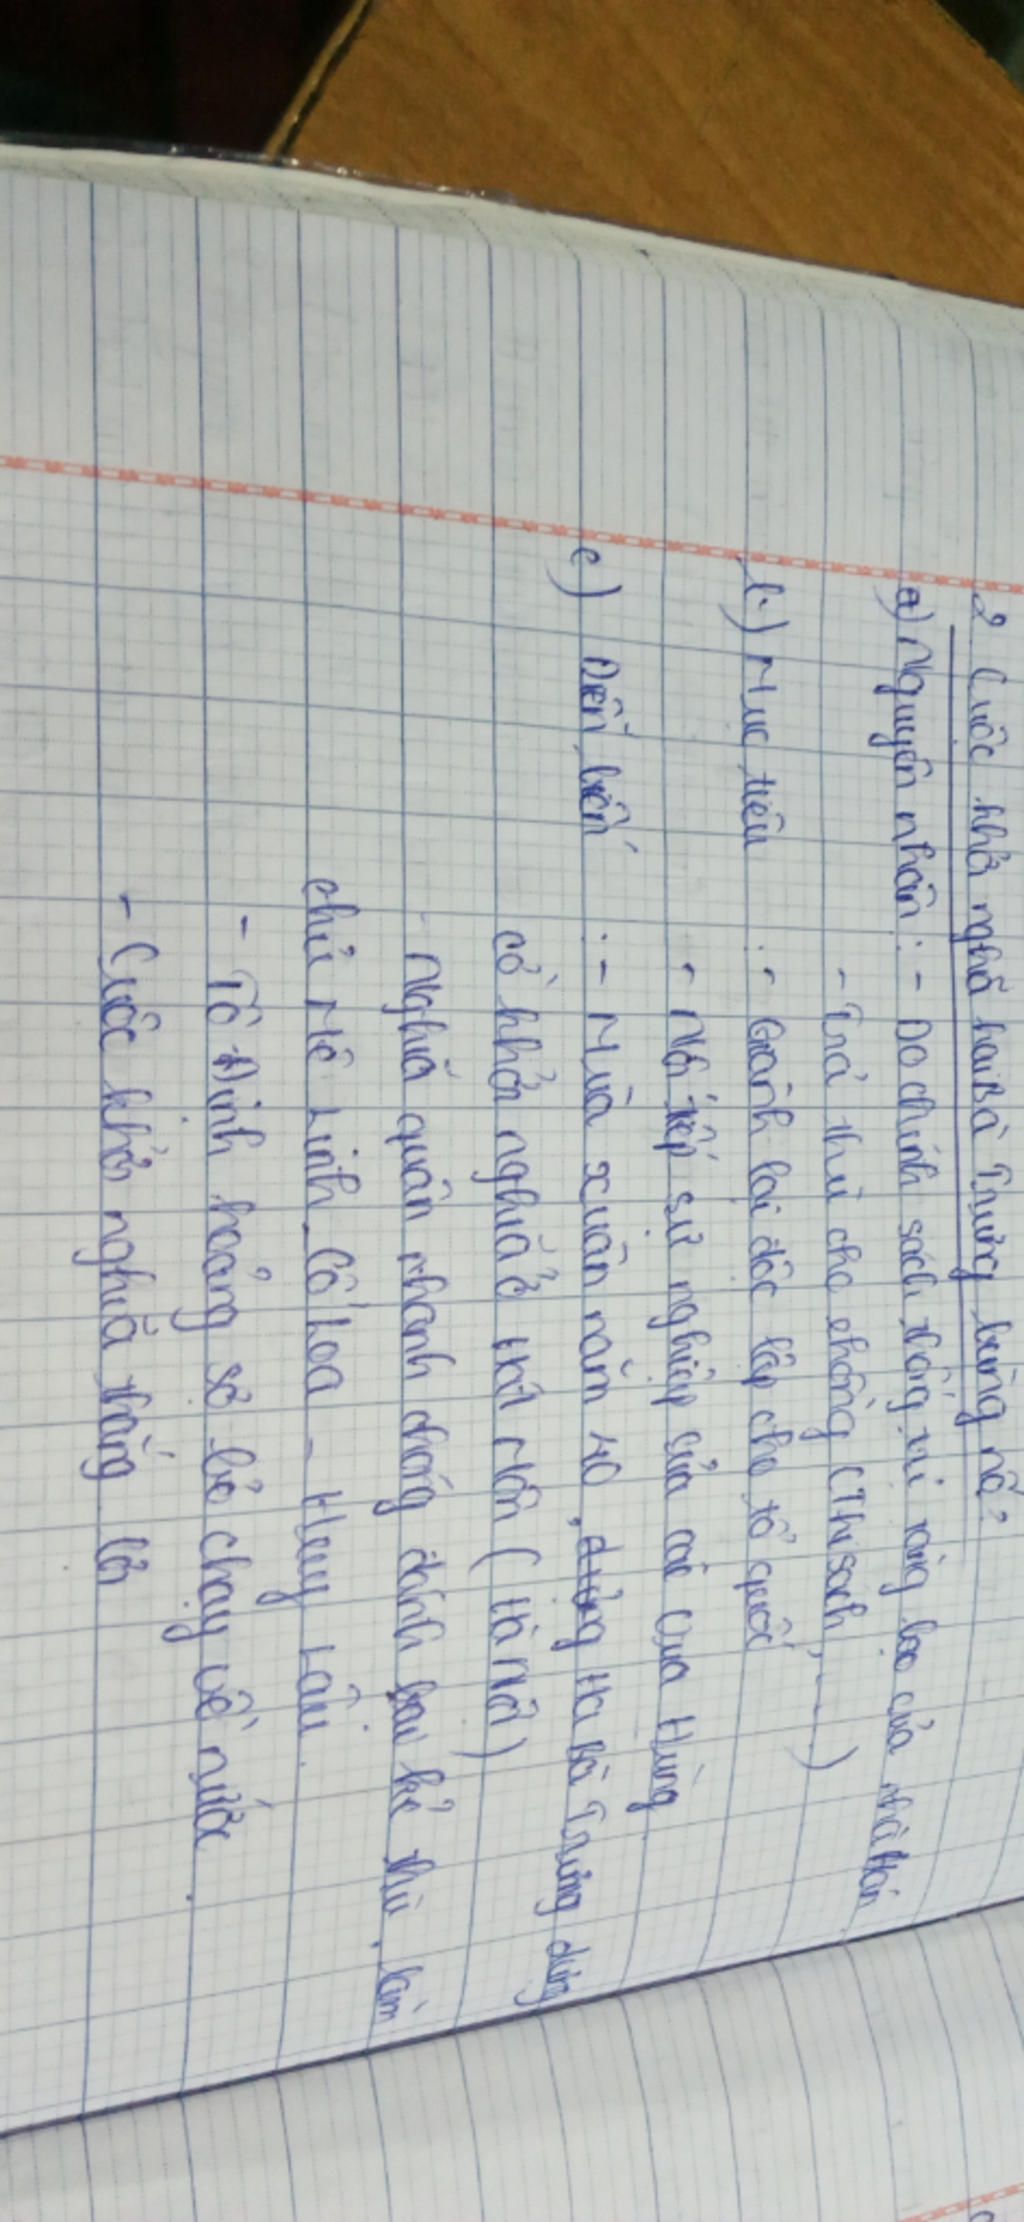 2 Cuộc khởi nghĩa hai Bà Trưng bùng nổ?
a) Nguyên nhân : - Do chính sách thống trị tàng bạo của nhà Hán
- Trả thù cho chồng (Thi sách, ...)
b) Mục tiêu : - Giành lại độc lập cho tổ quốc
- Nối tiếp sự nghiệp của các Vua Hùng
c) Diễn biến : - Mùa xuân năm 40, Hai Bà Trưng dựng
cờ khởi nghĩa ở Hát Môn (Hà Nội)
- Nghĩa quân nhanh chóng đánh bại kẻ thù, làm
chủ Mê Linh, Cổ Loa - Huy Lâu.
- Tô Định hoảng sợ bỏ chạy về nước.
- Cuộc khởi nghĩa thắng lợi